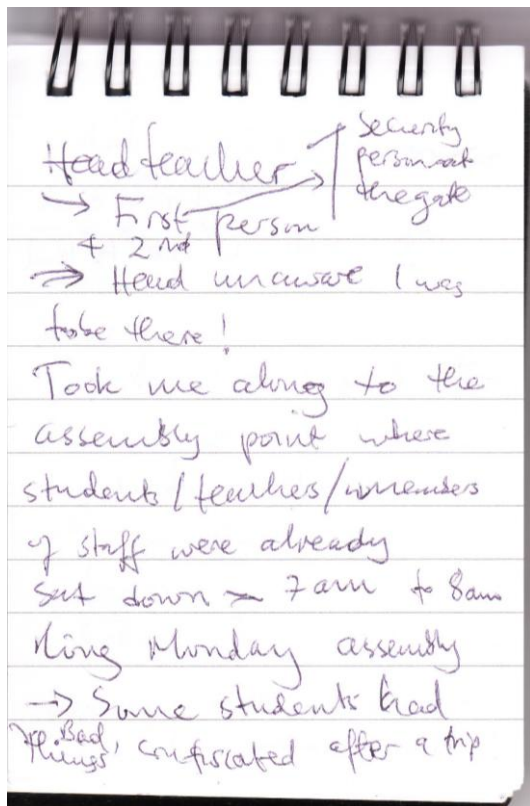 Headteacher
Security
person at
the gate
→ First person
+ 2nd
⇒ Head unaware I was
to be there!
Took me along to the
assembly point where
students/teachers/members
of staff were already
sat down 7am to 8am
Monday assembly
→ Some students had
"Bad
things" confiscated after a trip